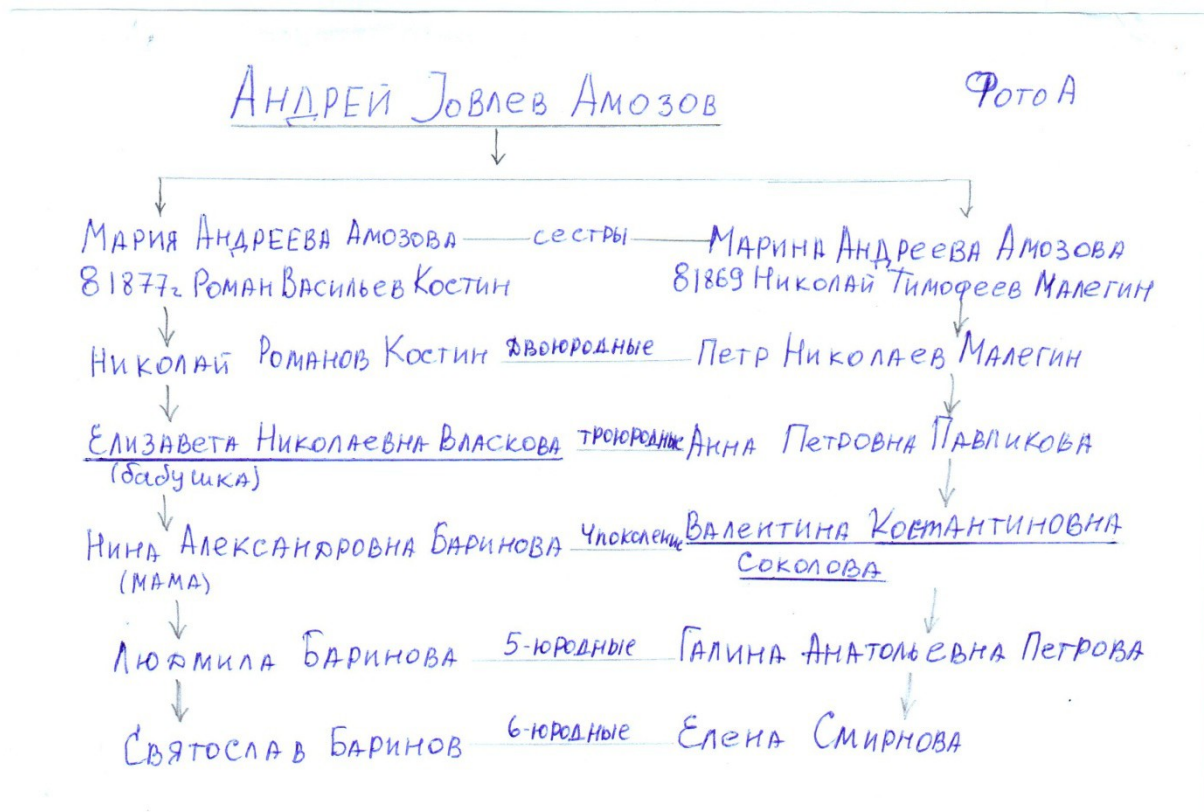 Андрей Јовлев Амозов
Фото А
Мария Андреева Амозова — сестры — Марина Андреева Амозова
81877г Роман Васильев Костин 81869 Николай Тимофеев Малегин
Николай Романов Костин двоюродные Петр Николаев Малегин
Елизавета Николаевна Власкова троюродные Анна Петровна Павликова
(бабушка)
Нина Александровна Баринова 4поколение Валентина Костантиновна
(мама) Соколова
Людмила Баринова 5-юродные Галина Анатольевна Петрова
Святослав Баринов 6-юродные Елена Смирнова